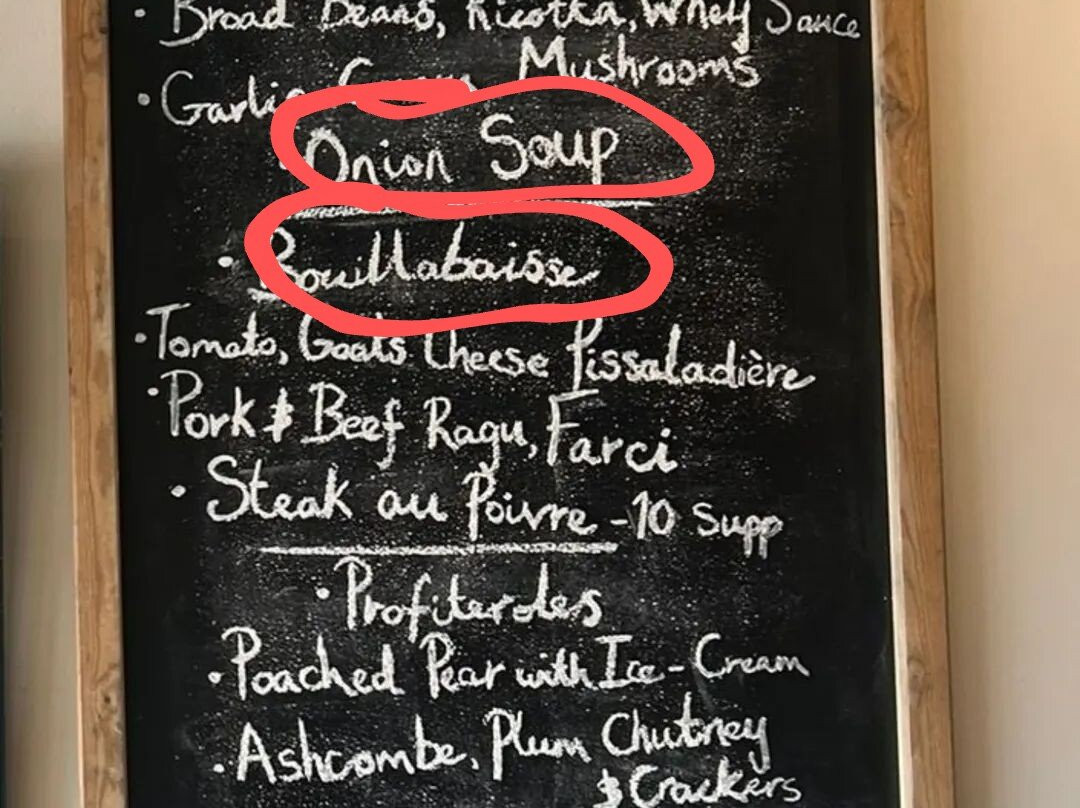 · Broad Beans, Ricotta, Whey Sauce
· Garlic Mushrooms
· Onion Soup
· Bouillabaisse
· Tomato, Goats Cheese Pissaladière
· Pork & Beef Ragu, Farci
· Steak au Poivre - 10 Supp
· Profiteroles
· Poached Pear with Ice-Cream
· Ashcombe, Plum Chutney
& Crackers